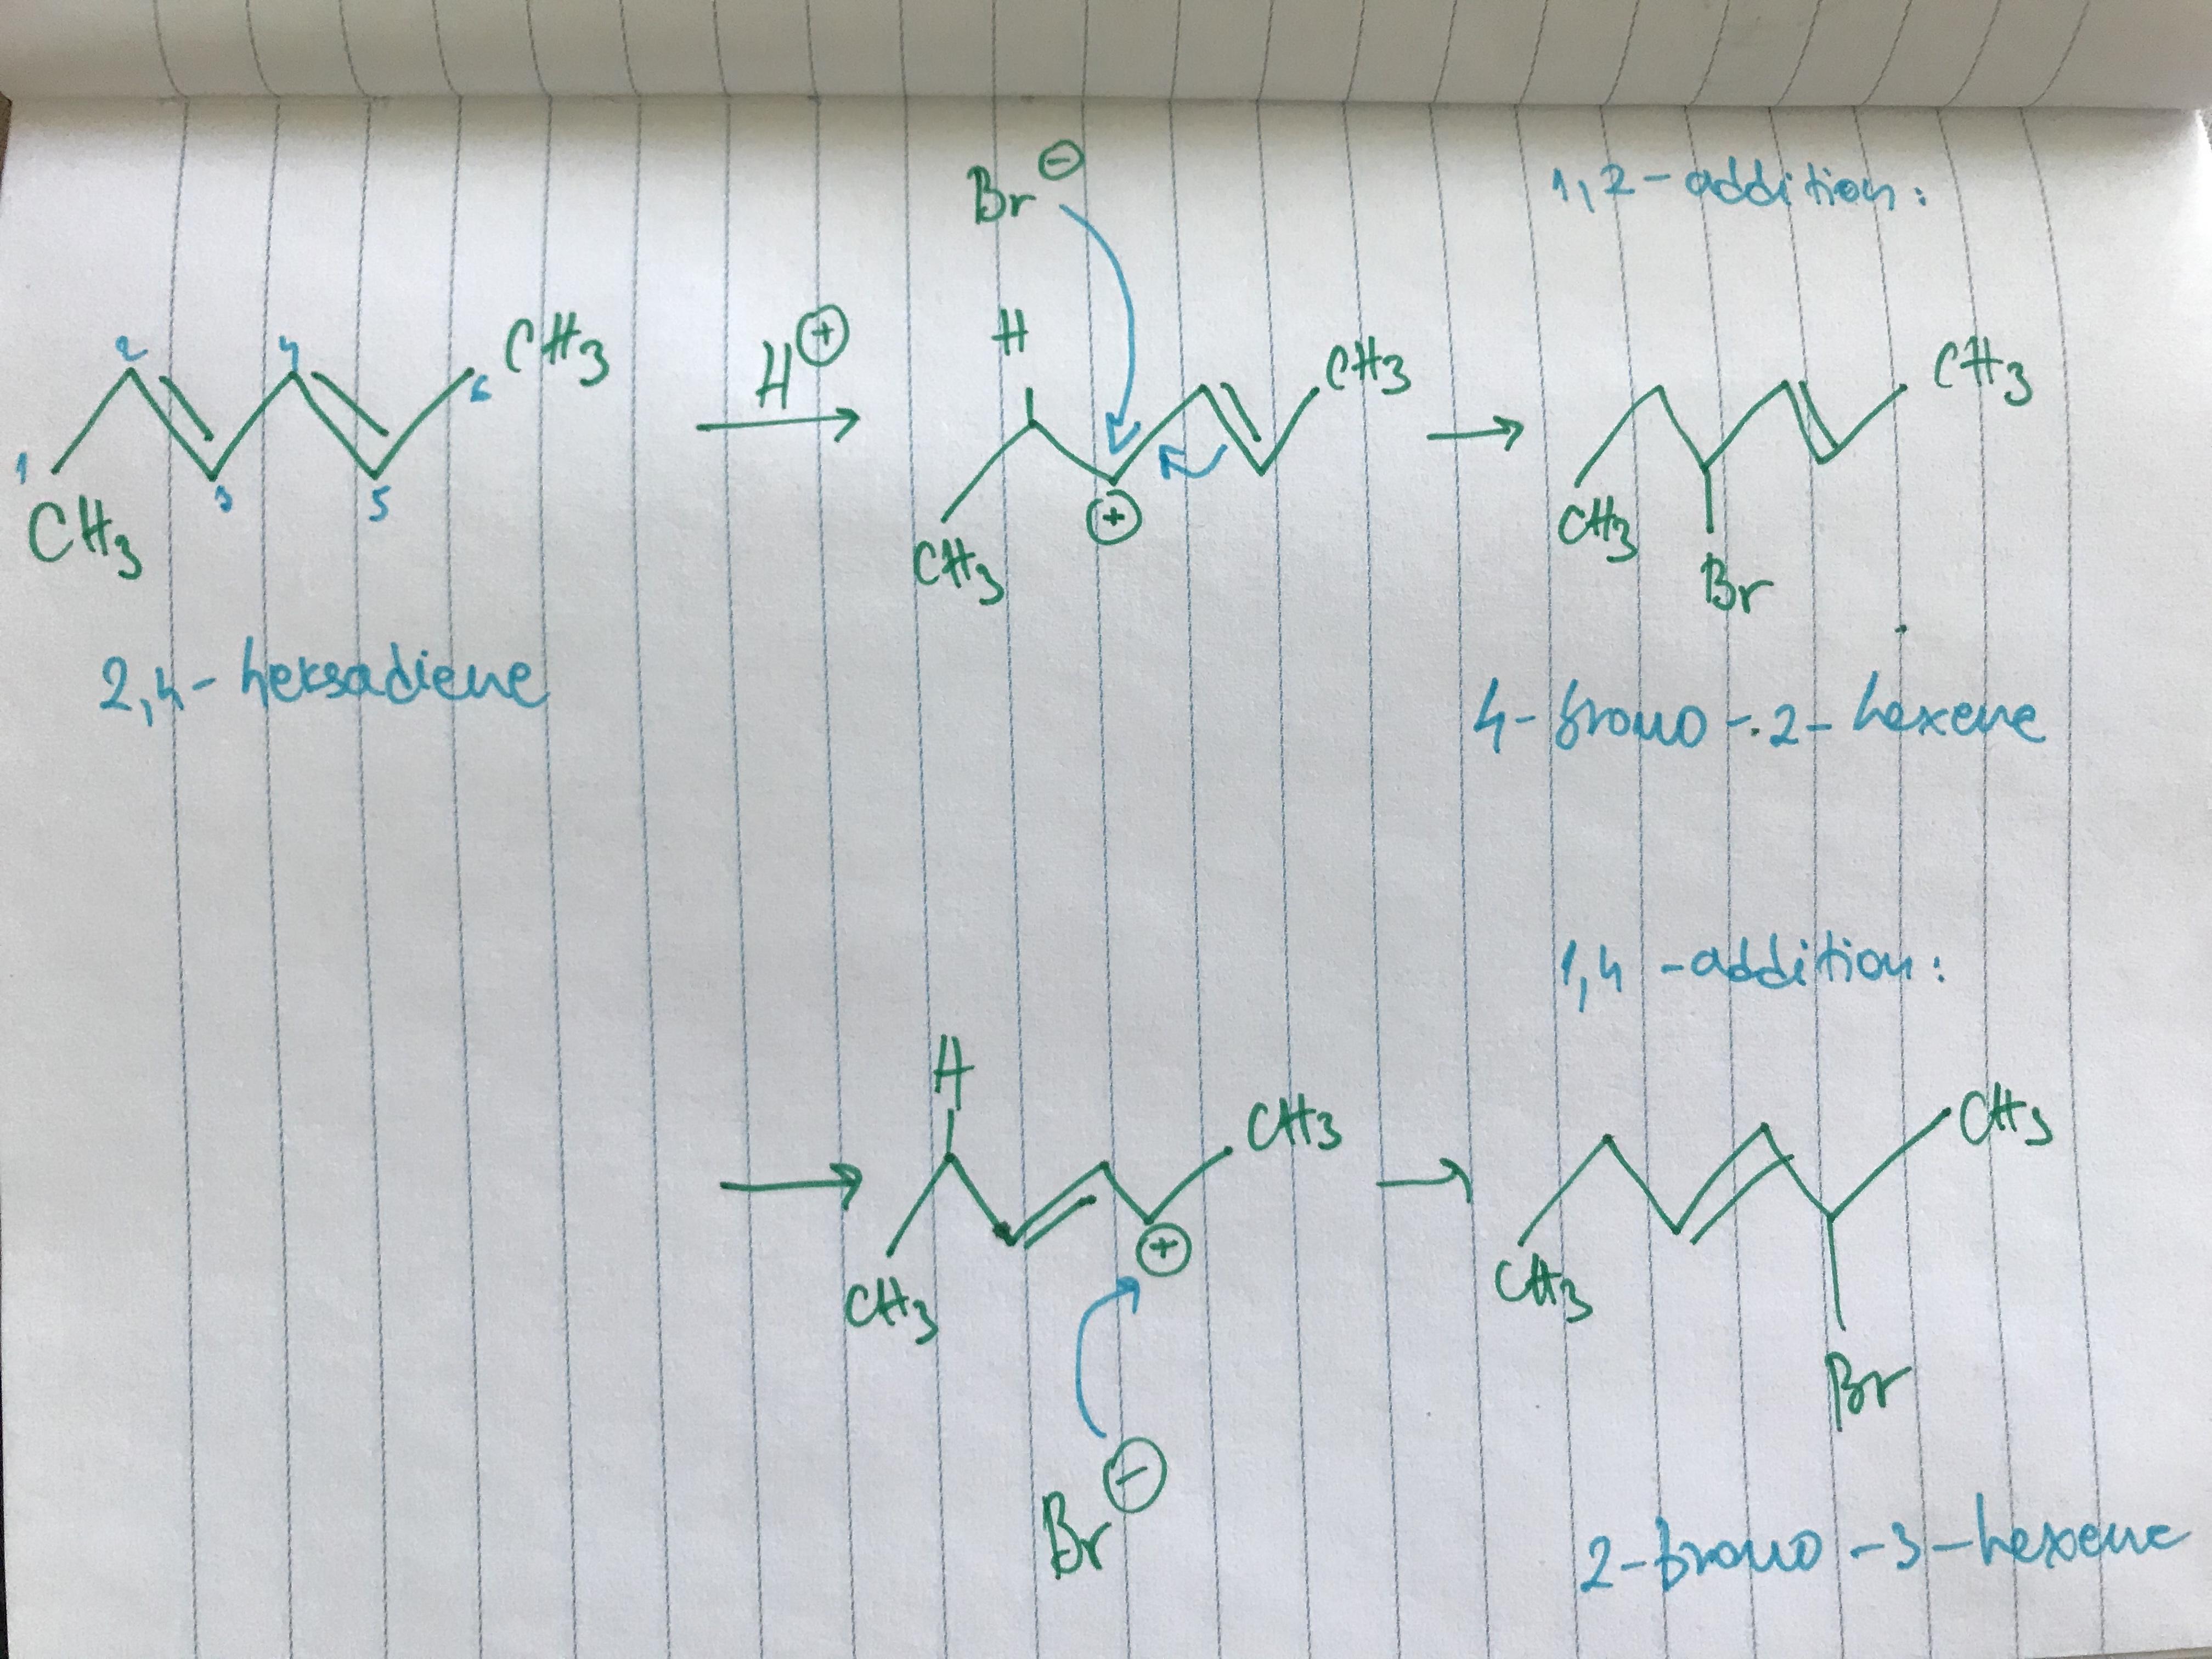 Br⊖
1,2-addition:
2 4 CH3
6
H⊕
H
CH3
CH3
1
CH3
3 5
⊕
CH3
CH3
Br
2,4-heksadiene
4-bromo-2-hexene
1,4-addition:
H
CH3
CH3
⊕
CH3
CH3
Br⊖
Br
2-bromo-3-hexene